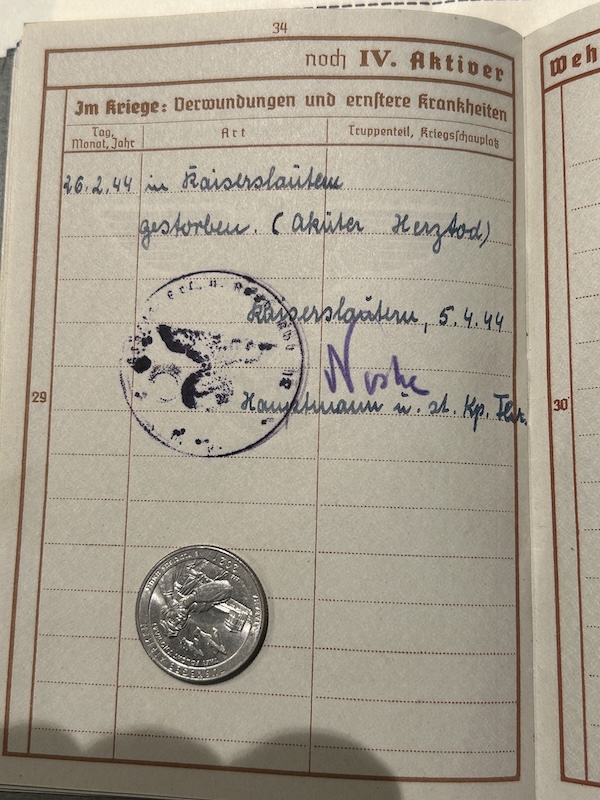 34
noch IV. Aktiver
Im Kriege: Verwundungen und ernstere Krankheiten
Tag, Monat, Jahr
Art
Truppenteil, Kriegsschauplatz
26.2.44 in Kaiserslautern
gestorben. (Akuter Herztod)
Kaiserslautern, 5.4.44
Noske
Hauptmann u. st. Kp.
29
30
Weh